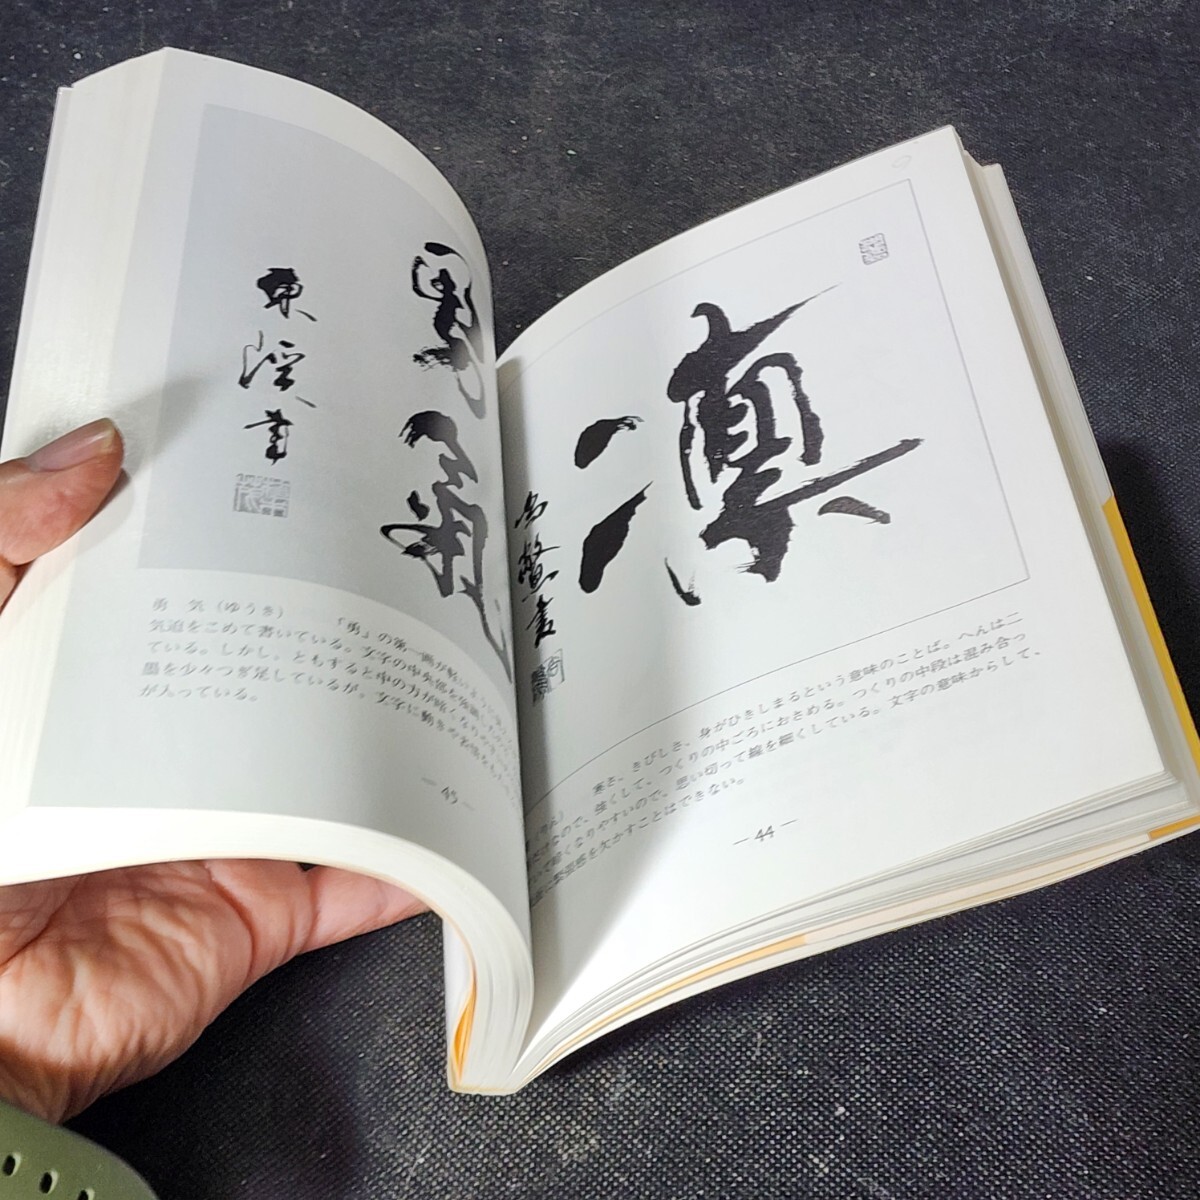 凛
寒さ、きびしさ、身がひきしまるという意味のことば。へんは二
なので、強くして、つくりの中ごろにおさめる。つくりの中段は混み合っ
いて暗くなりやすいので、思い切って線を細くしている。文字の意味からして、
緊張感を欠かすことはできない。
— 44 —
勇気
東渓書
勇 気(ゆうき) 「勇」の第一画が軽いように
気迫をこめて書いている。文字の中央部を強調し
ている。しかし、ともすると中の力が暗くなりやす
墨を少々つぎ足しているが、文字に動きや表情をも
が入っている。
— 45 —